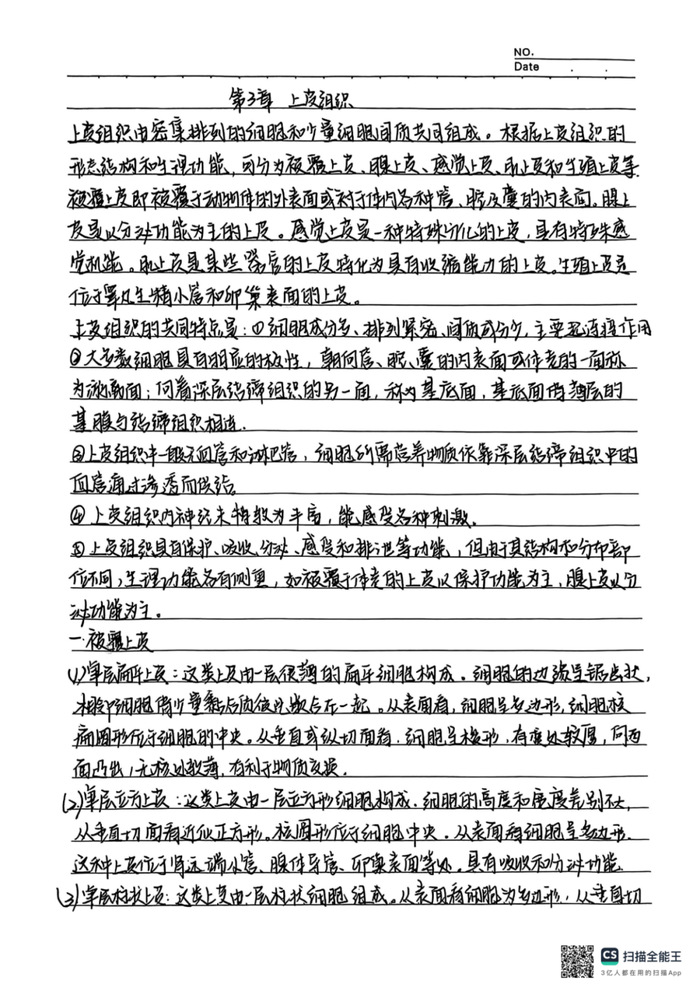 NO.
Date
第3章 上皮组织
上皮组织由密集排列的细胞和少量细胞间质共同组成。根据上皮组织的
形态结构和生理功能,可分为被覆上皮、腺上皮、感觉上皮、肌上皮和生殖上皮等
被覆上皮即被覆于动物体的外表面或衬于体内各种管、腔及囊的内表面。腺上
皮是以分泌功能为主的上皮。感觉上皮是一种特殊分化的上皮,具有特殊感
觉机能。肌上皮是某些器官的上皮特化为具有收缩能力的上皮。生殖上皮是
位于睾丸生精小管和卵巢表面的上皮。
上皮组织的共同特点是:①细胞成分多、排列紧密、间质成分少,主要起连接作用
②大多数细胞具有明显的极性,朝向管、腔、囊的内表面或体表的一面称
为游离面;向着深层结缔组织的另一面,称为基底面,基底面借薄层的
基膜与结缔组织相连.
③上皮组织中一般无血管和淋巴管,细胞所需营养物质依靠深层结缔组织中的
血管通过渗透而供给.
④上皮组织内神经末梢较为丰富,能感受各种刺激.
⑤上皮组织具有保护、吸收、分泌、感受和排泄等功能,但由于其结构和分布部
位不同,生理功能各有侧重,如被覆于体表的上皮以保护功能为主,腺上皮以分
泌功能为主。
一.被覆上皮
(1)单层扁平上皮:这类上皮由一层很薄的扁平细胞构成。细胞的边缘呈锯齿状,
相邻细胞借少量黏合质彼此嵌合在一起。从表面看,细胞呈多边形,细胞核
扁圆形位于细胞的中央。从垂直或纵切面看,细胞呈梭形,有核处较厚,向两
面凸出,无核处较薄,有利于物质交换.
(2)单层立方上皮:这类上皮由一层立方形细胞构成,细胞的高度和宽度差别不大,
从垂直切面看近似正方形。核圆形位于细胞中央.从表面看细胞呈多边形.
这种上皮位于肾远端小管、腺体导管、卵巢表面等处.具有吸收和分泌功能
(3)单层柱状上皮:这类上皮由一层柱状细胞组成。从表面看细胞为多边形,从垂直切
CS 扫描全能王
3亿人都在用的扫描App